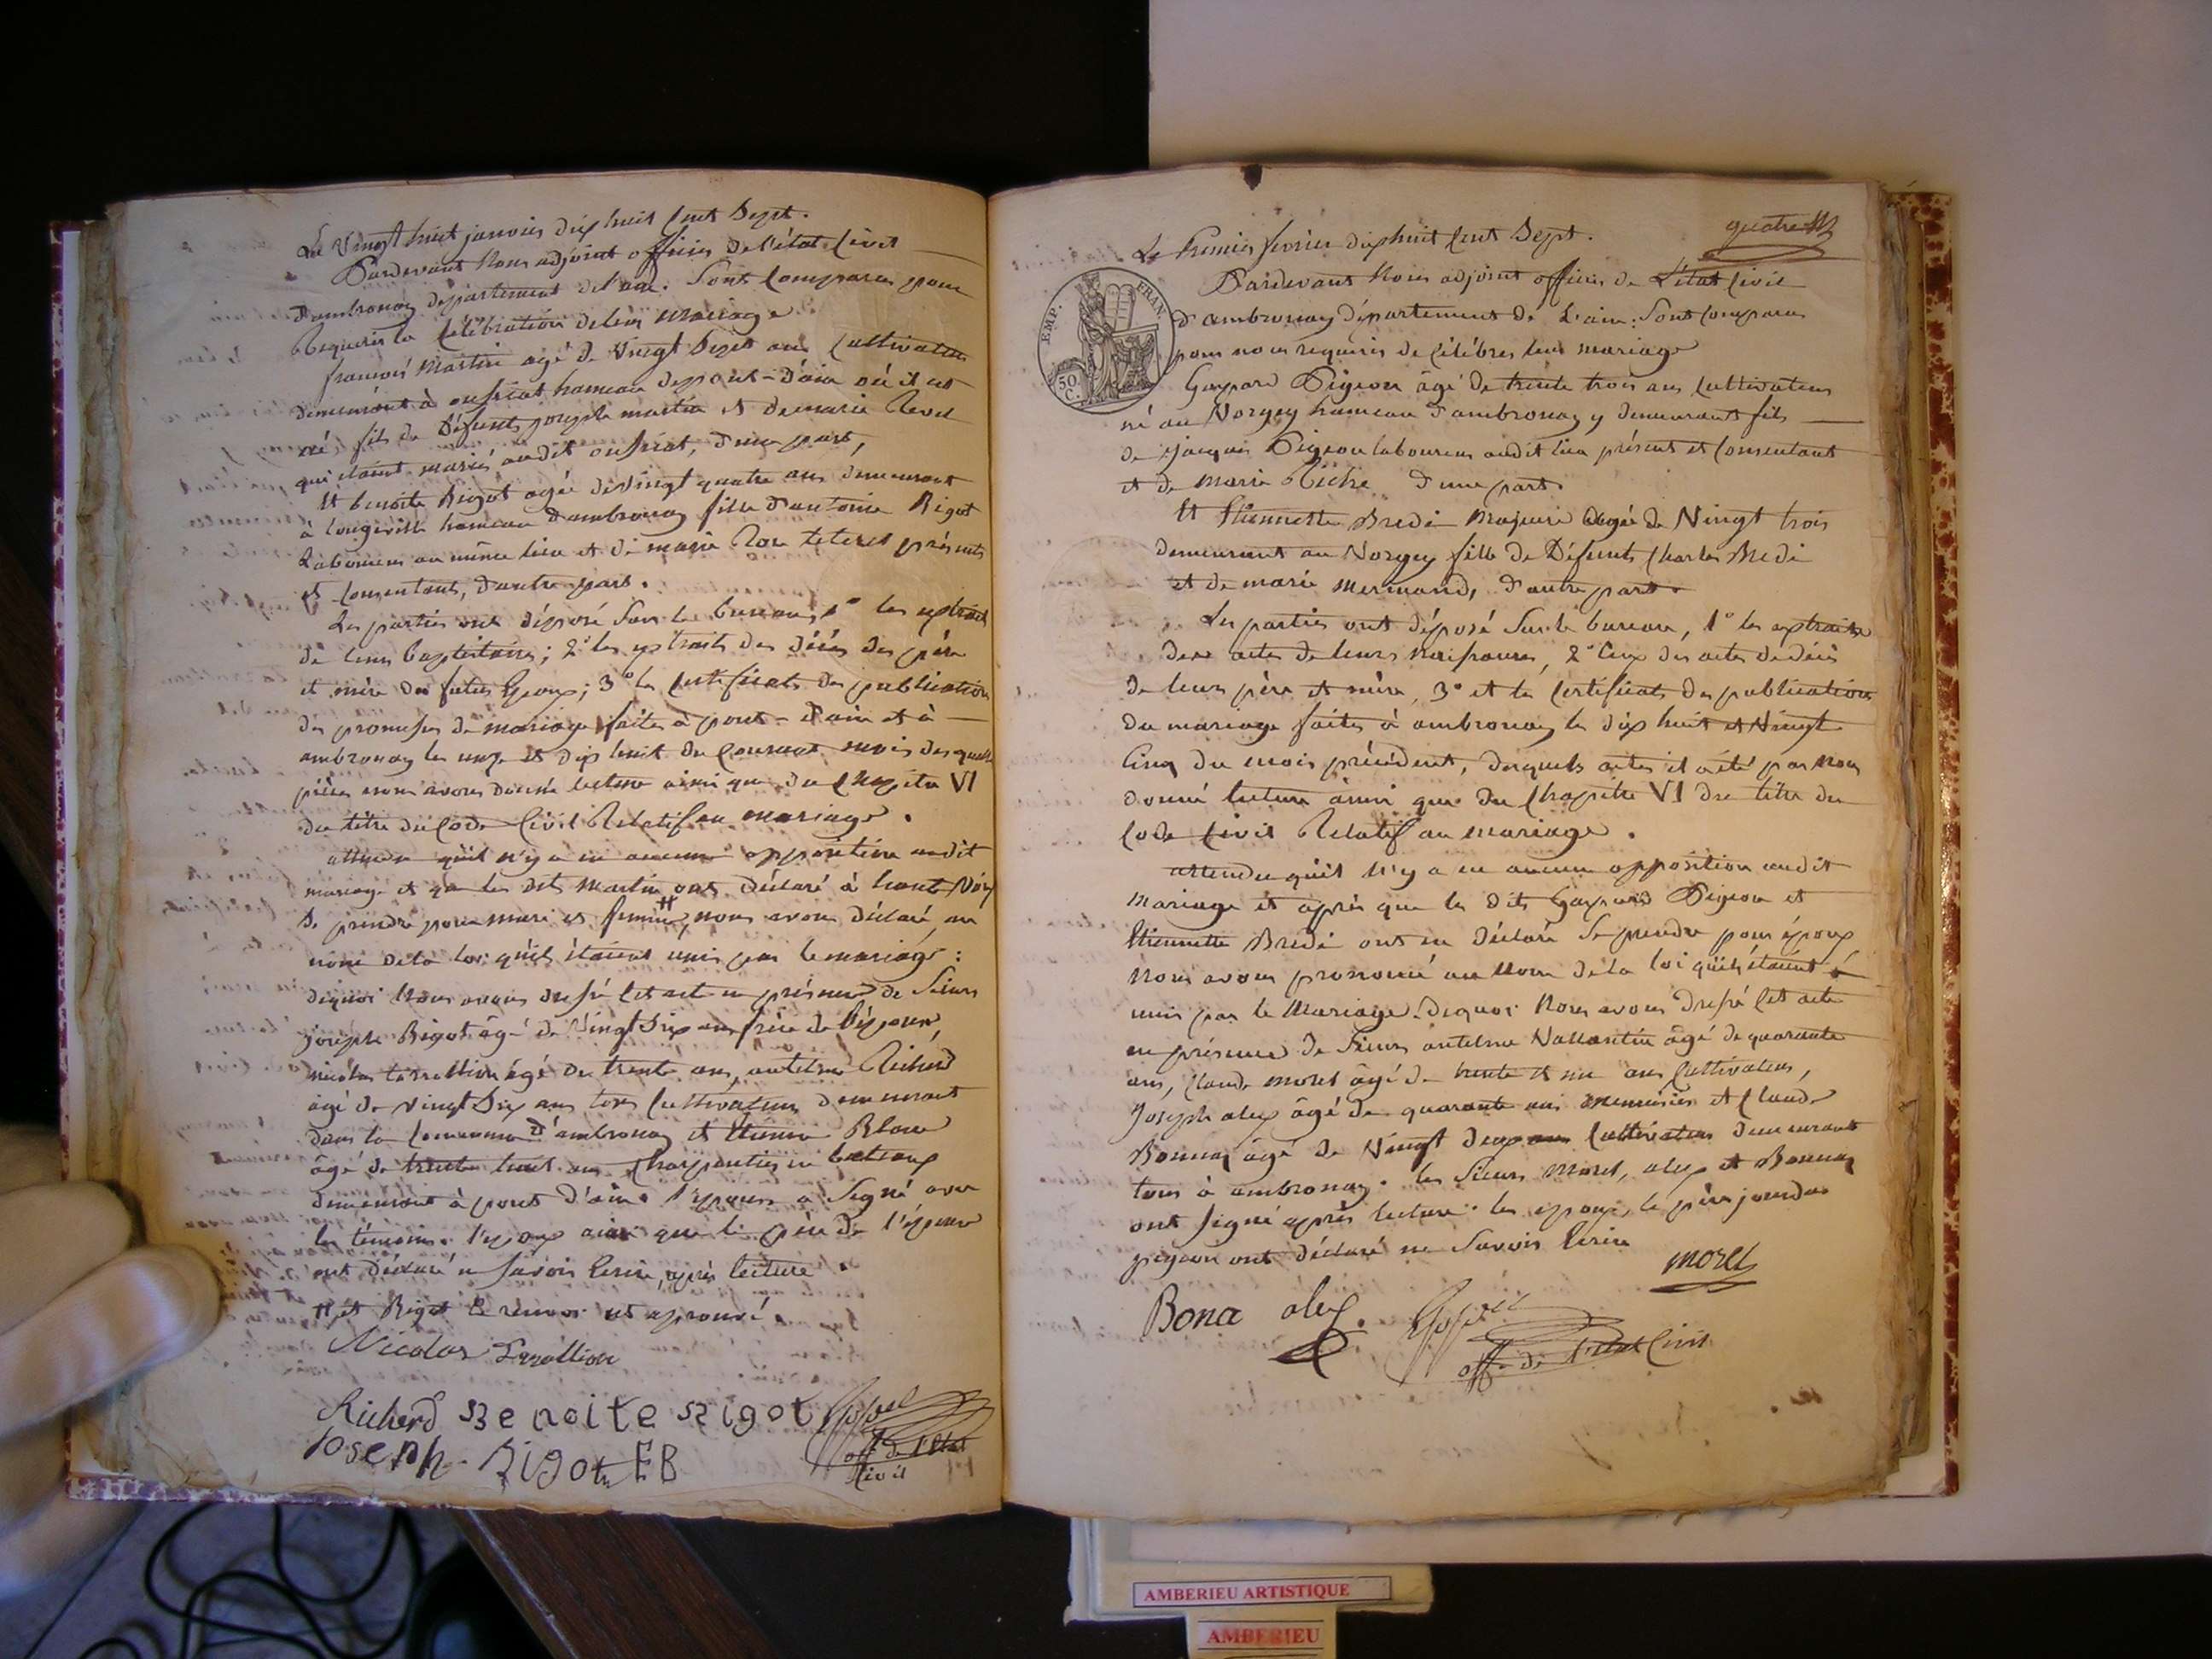 Le Vingt huit janvier dix huit Cent Sept.
Pardevant Nous adjoint officier de l'état Civil
d'ambronay département de l'ain. Sont Comparus pour
Requerir la Célébration de leur Mariage
françois Martin agé de Vingt Sept ans Cultivateur
demeurant à oussiat hameau de pont-d'ain où il est
né fils de Défunts joseph martin et de marie Revel
qui étaient mariés audit oussiat, d'une part,
Et benoite Rigot agée de Vingt quatre ans demeurant
à longeville hameau d'ambronay fille d'antoine Rigot
Laboureur au même lieu et de marie présents
et Consentants, d'autre part.
Les parties ont déposé Sur le bureau, 1° les extraits
de leurs baptistaires; 2° les extraits des décès des père
et mère du futur Epoux; 3° les Certificats des publications
des promesses de mariage faites à pont-d'ain et à
ambronay les onze et dix huit du Courant mois desquelles
pièces nous avons donné lecture ainsi que du Chapitre VI
du titre du Code Civil Relatif au mariage.
attendu qu'il n'y a eu aucune opposition audit
mariage et que les dits Martin ont déclaré à haute Voix
Se prendre pour mari et femme # nous avons déclaré au
nom de la loi qu'ils étaient unis par le mariage:
dequoi Nous avons dressé Cet acte en présence de Sieurs
joseph Rigot âgé de Vingt Six ans frère de l'épouse,
nicolas âgé de trente ans, antelme Richerd
âgé de Vingt Six ans tous Cultivateurs demeurant
dans la Commune d'ambronay et Etienne
âgé de trente huit ans Charpentier en bateaux
demeurant à pont d'ain. l'épouse a Signé avec
les témoins. l'époux ainsi que le père de l'épouse
ont déclaré ne Savoir Ecrire, après lecture.
# et Rigot le renvoi est aprouvé.
Nicolas
Richerd Benoite Rigot
Joseph Rigot EB
off. de l'Etat
Civil
quatre
Le Premier fevrier dix huit Cent Sept.
Pardevant Nous adjoint officier de L'état Civil
d'ambronay département de L'ain: Sont Comparus
pour nous requerir de Célébrer leur mariage
EMP. FRAN.
50 C.
Gaspard Pigeon âgé de trente trois ans Cultivateur
né au Vorgey hameau d'ambronay y demeurant fils
de jacques Pigeon laboureur audit lieu présent et Consentant
et de Marie Riche d'une part.
Et Etiennette Bredi Majeure agée de Vingt trois
demeurant au Vorgey fille de Défunts Charles Bredi
et de marie Mermand, d'autre part.
Les parties ont déposé Sur le bureau, 1° les extraits
des actes de leurs Naissances, 2° Ceux des actes de décès
de leurs père et mère, 3° et les Certificats des publications
du mariage faites à ambronay les dix huit et Vingt
Cinq du mois précédent, desquels actes il a été par Nous
donné lecture ainsi que du Chapitre VI du titre du
Code Civil Relatif au mariage.
attendu qu'il n'y a eu aucune opposition audit
Mariage et après que les dits Gaspard Pigeon et
Etiennette Bredi ont eu déclaré Se prendre pour époux
Nous avons prononcé au Nom de la loi qu'ils étaient
unis par le Mariage. dequoi Nous avons dressé Cet acte
en présence de Sieurs antelme Vallantin âgé de quarante
ans, Claude Morel âgé de trente et un ans Cultivateurs,
Joseph alex âgé de quarante ans menuisier et Claude
Bonnaz âgé de Vingt deux ans Cultivateur demeurant
tous à ambronay. les Sieurs Morel, alex et Bonnaz
ont signé après lecture. les epoux, le père
pigeon ont déclaré ne Savoir Ecrire
morel
Bona alex.
off. de l'etat Civil
AMBERIEU ARTISTIQUE
AMBERIEU